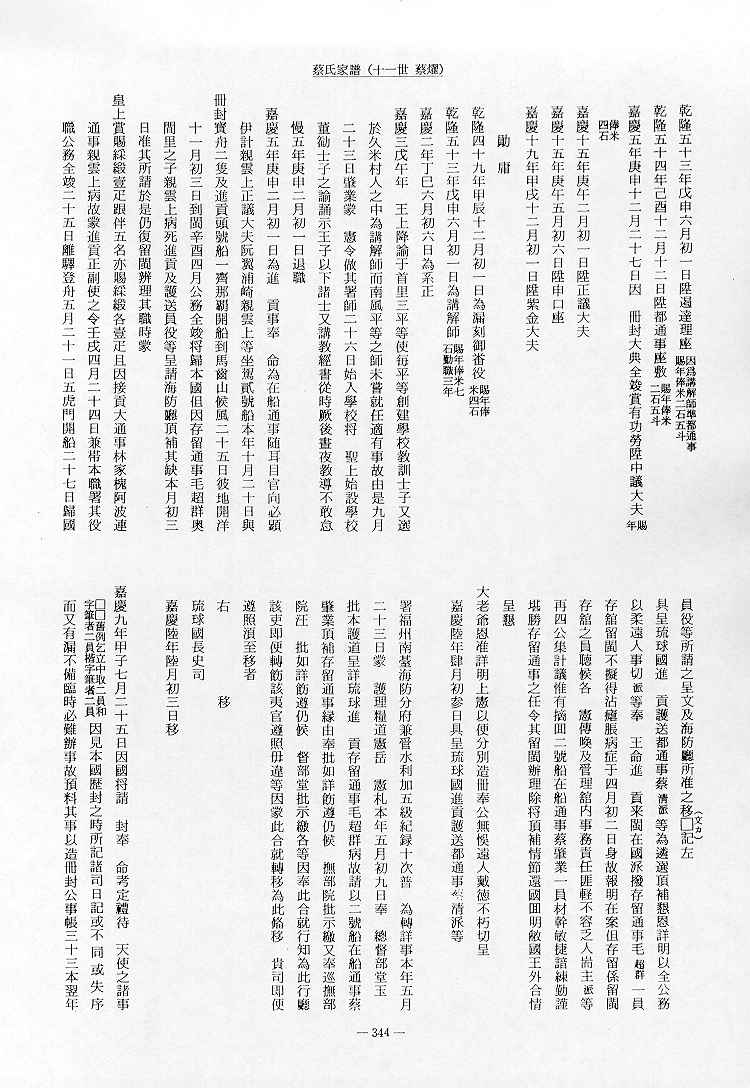 蔡氏家譜(十一世 蔡燿)
乾隆五十三年戊申六月初一日陞遏達理座因爲講解師準都通事賜年俸米二石五斗
乾隆五十四年己酉十二月十二日陞都通事座敷賜年俸米二石五斗
嘉慶五年庚申十二月二十七日因 冊封大典全竣賞有功勞陞中議大夫賜年
俸米四石
嘉慶十五年庚午二月初一日陞正議大夫
嘉慶十五年庚午五月初六日陞申口座
嘉慶十九年甲戌十二月初一日陞紫金大夫
勛庸
乾隆四十九年甲辰十二月初一為漏刻御畨役賜年俸米四石
乾隆五十三年戊申六月初一日為講解師賜年俸米七石勤職三年
嘉慶二年丁巳六月初六日為系正
嘉慶三戊午年 王上降諭于首里三平等使毎平等創建學校教訓士子又選
於久米村人之中為講解師而南風平等之師未嘗就任適有事故由是九月
二十三日肇業蒙 憲令做其署師二十六日始入學校将 聖上始設學校
董勧士子之諭誦示王子以下諸士又講教經書從時厥後晝夜教導不敢怠
慢五年庚申二月初一日退職
嘉慶五年庚申二月初一日為進 貢事奉 命為在船通事随耳目官向必顕
伊計親雲上正議大夫阮翼浦崎親雲上等坐駕貳號船本年十月二十日與
冊封寳舟二隻及進貢頭號船一齊那覇開船到馬齒山候風二十五日彼地開洋
十一月初三日到閩辛酉四月公務全竣将歸本國但因存留通事毛超群奥
間里之子親雲上病死進貢及護送員役等呈請海防廳頂補其缺本月初三
日准其所請於是仍復留閩辨理其職時蒙
皇上賞賜綵緞壹疋跟伴五名亦賜綵緞各壹疋且因接貢大通事林家槐阿波連
通事親雲上病故蒙進貢正副使之令壬戌四月二十四日兼帯本職署其役
職公務全竣二十五日離驛登舟五月二十一日五虎門開船二十七日歸國
員役等所請之呈文及海防廳所准之移□記左
(文カ)
具呈琉球國進 貢護送都通事蔡清派等為遴選頂補懇恩詳明以全公務
以柔遠人事切派等奉 王命進 貢来閩在國派撥存留通事毛超群一員
存舘留閩不擬得沾瘧脹病症于四月初二日身故報明在案但存留係留閩
存舘之員聽候各 憲傳喚及管理舘内事務責任匪軽不容乏人岩主派等
再四公集計議惟有摘囬二號船在船通事蔡肇業一員材幹敏捷諳練勤謹
堪勝存留通事之任令其留閩辦理除将頂補情節還國囬明敝國王外合情
呈懇
大老爺恩准詳明上憲以便分別造冊奉公無悞遠人戴徳不朽切呈
嘉慶陸年肆月初参日具呈琉球國進貢護送都通事蔡清派等
署福州南臺海防分府兼管水利加五級紀録十次普 為轉詳事本年五月
二十三日蒙 護理糧道憲岳 憲札本年五月初九日奉 總督部堂玉
批本護道呈詳琉球進 貢存留通事毛超群病故請以二號船在船通事蔡
肇業頂補存留通事縁由奉批如詳飭遵仍候 撫部院批示繳又奉巡撫部
院汪 批如詳飭遵仍候 督部堂批示繳各等因奉此合就行知為此行廳
該吏即便轉飭該夷官遵照毋違等因蒙此合就轉移為此條移 貴司即便
遵照湏至移者
右 移
琉球國長史司
嘉慶陸年陸月初三日移
嘉慶九年甲子七月二十五日因國将請 封奉 命考定禮待 天使之諸事
□□舊例乞立中取二員和字筆者二員楷字筆者二員因見本國歷封之時所記諸司日記或不同或失序
而又有漏不備臨時必難辦事故預料其事以造冊封公事帳三十三本翌年
— 344 —